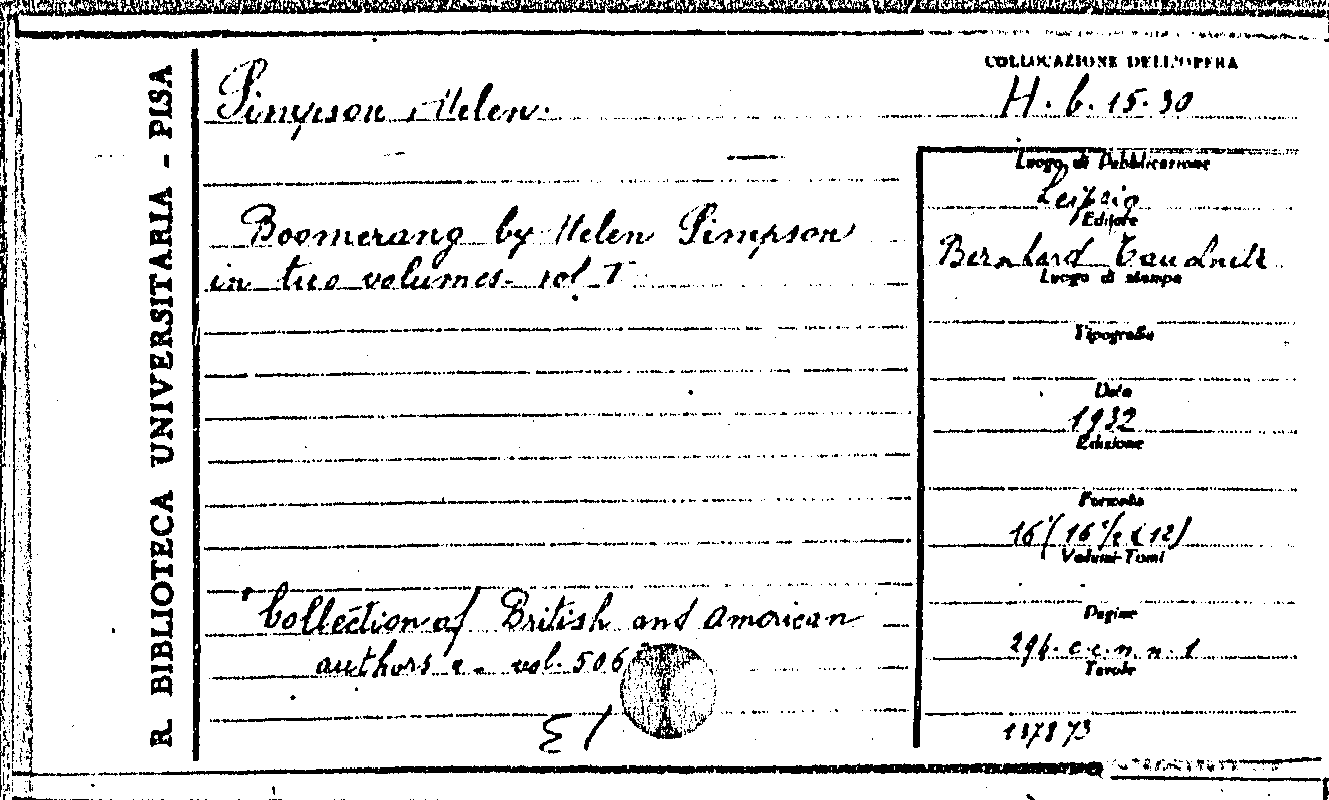 R. BIBLIOTECA UNIVERSITARIA - PISA
COLLOCAZIONE DELL'OPERA
Simpson Helen.
H. b. 15. 30
Boomerang by Helen Simpson
in two volumes. vol I
Collection of British and American
authors vol. 506
Luogo di Pubblicazione
Leipzig
Editore
Bernhard Tauchnitz
Luogo di stampa
Tipografia
Data
1932
Edizione
Formato
16°
Volumi-Tomi
Pagine
296. c.c. n. n. 1
Tavole
137873